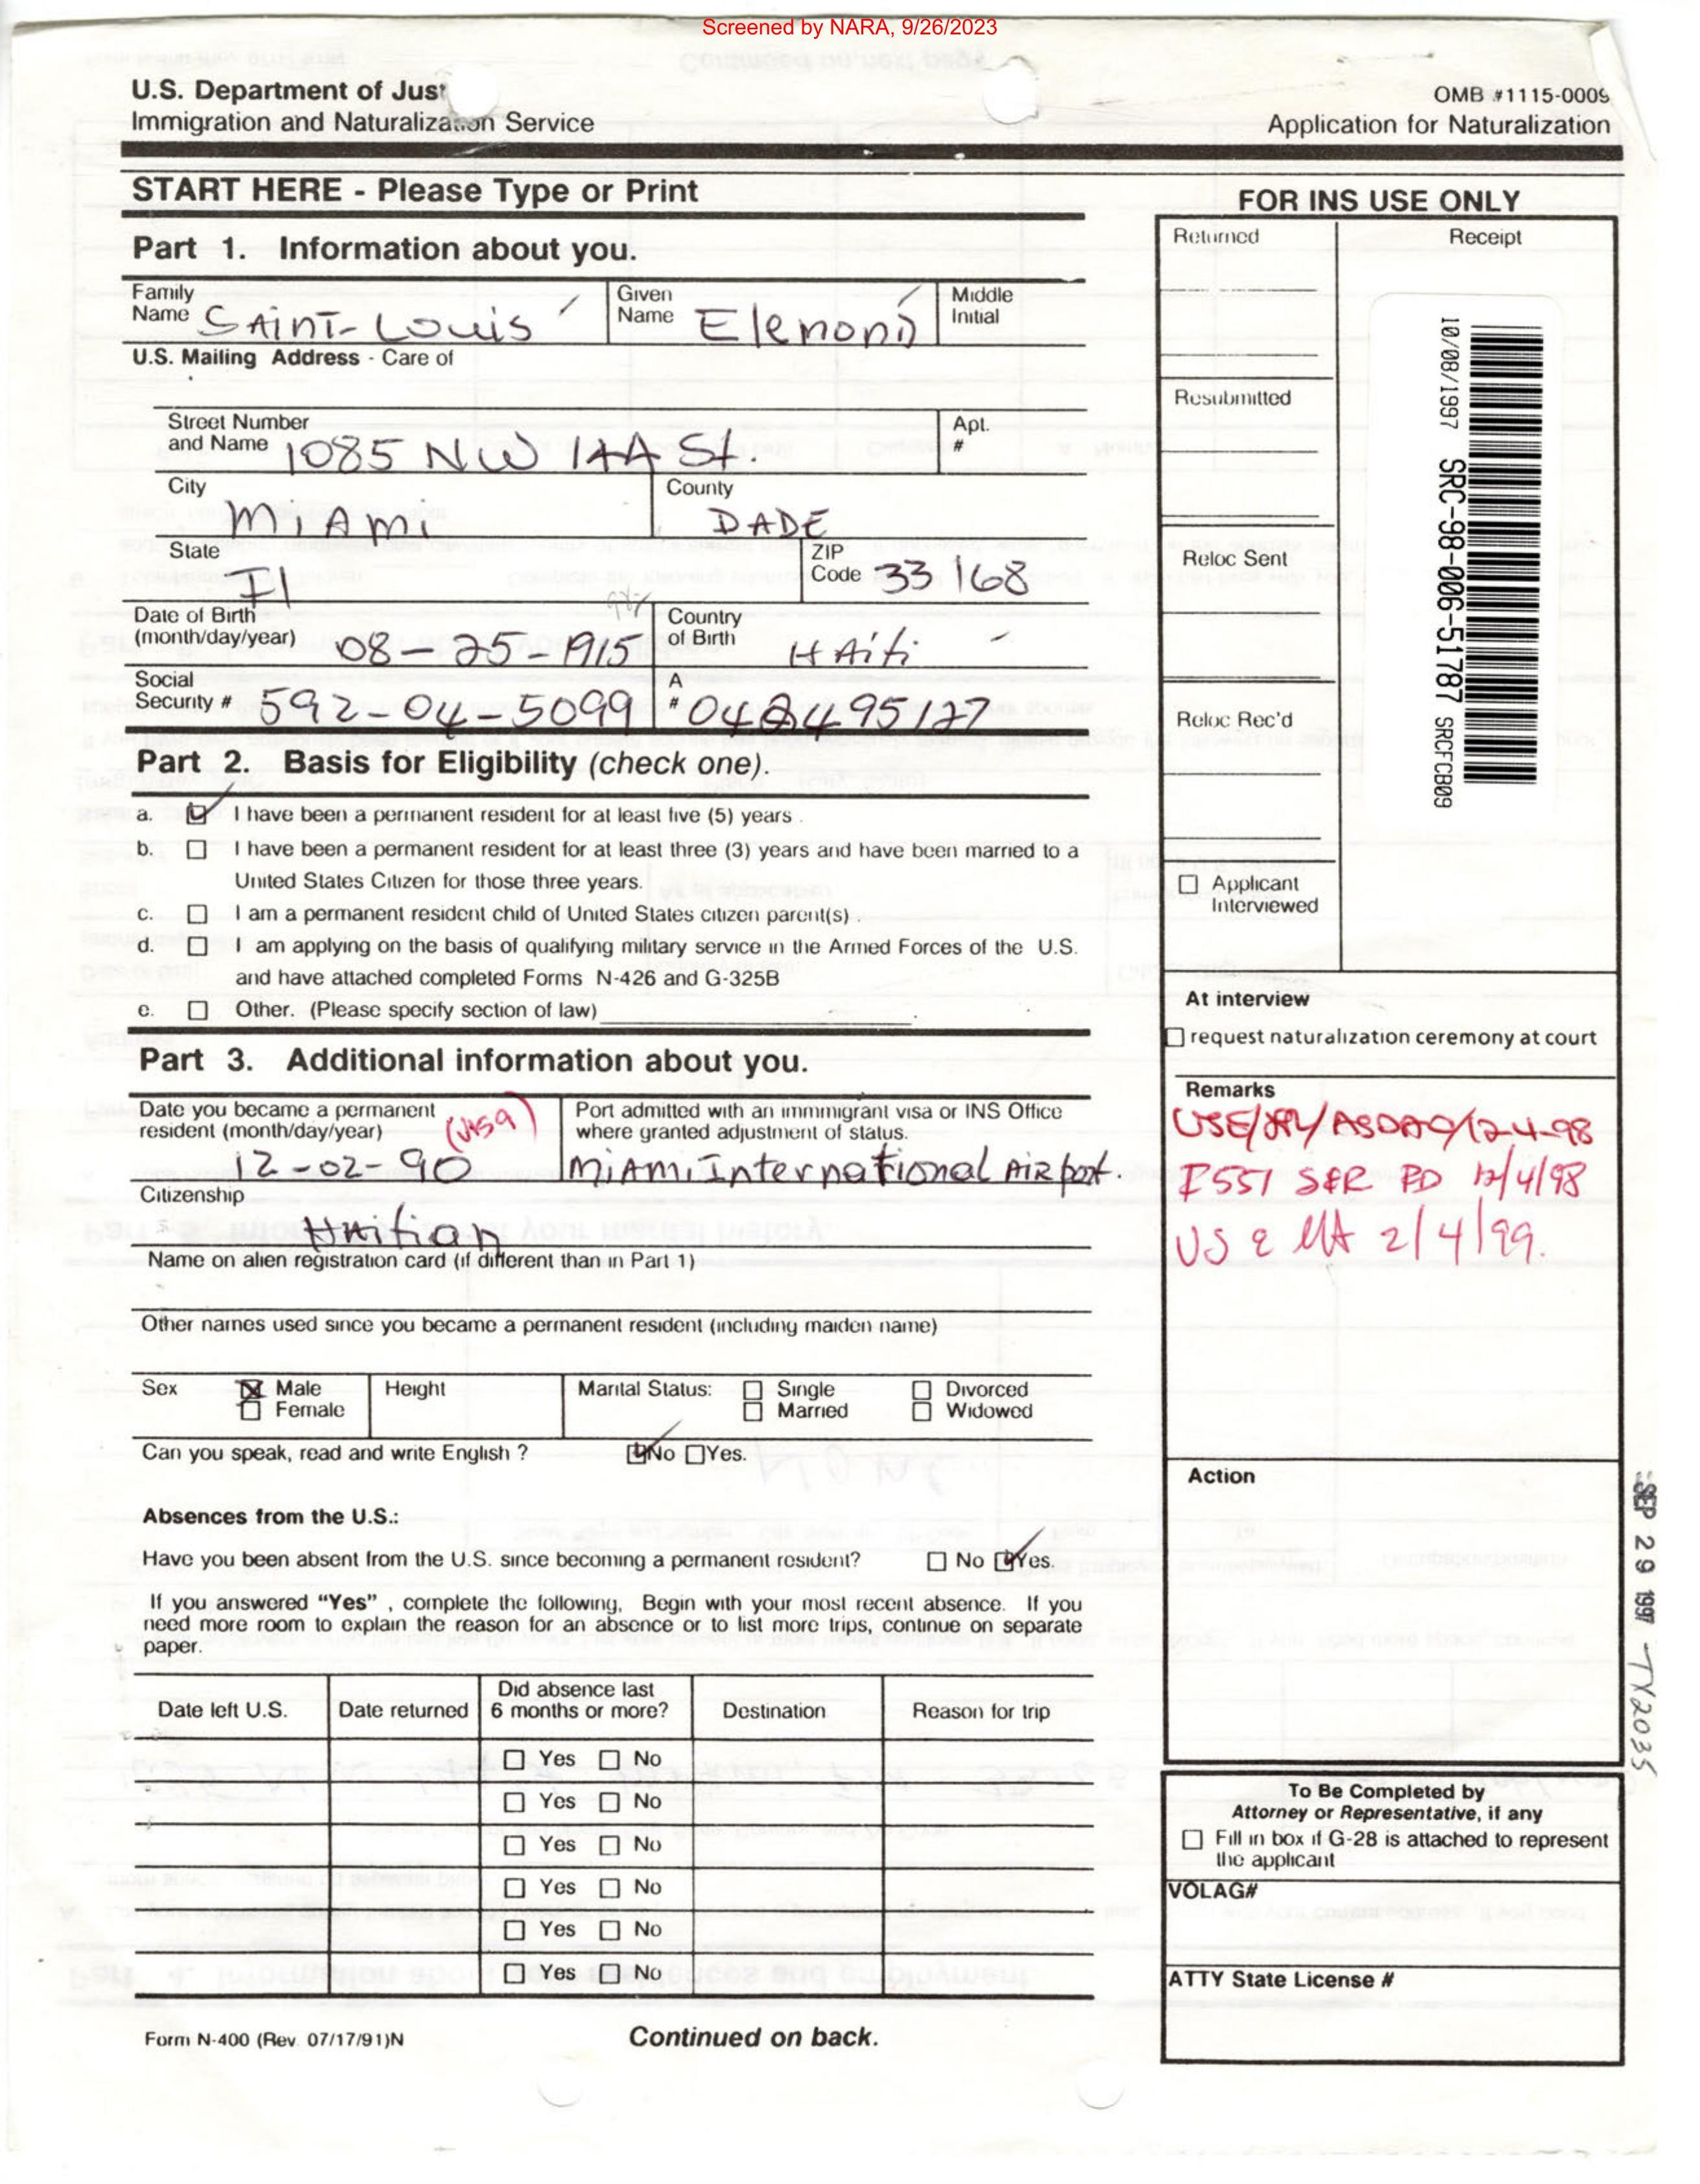 Screened by NARA, 9/26/2023
U.S. Department of Just
Immigration and Naturalization Service
OMB #1115-0009
Application for Naturalization
START HERE - Please Type or Print
Part 1. Information about you.
Family Name SAinT-Louis
Given Name
Middle Initial
U.S. Mailing Address - Care of
Street Number and Name 1085 NW 144 St.
Apt. #
City MiAmi
County DADE
State Fl
ZIP Code 33168
Date of Birth (month/day/year) 08-25-1915
Country of Birth HAiti
Social Security # 592-04-5099
A #
Part 2. Basis for Eligibility (check one).
a. I have been a permanent resident for at least five (5) years.
b. I have been a permanent resident for at least three (3) years and have been married to a
United States Citizen for those three years.
c. I am a permanent resident child of United States citizen parent(s).
d. I am applying on the basis of qualifying military service in the Armed Forces of the U.S.
and have attached completed Forms N-426 and G-325B
e. Other. (Please specify section of law)
Part 3. Additional information about you.
Date you became a permanent resident (month/day/year) 12-02-90 (visa)
Port admitted with an immigrant visa or INS Office
where granted adjustment of status.
MiAmi International AiRport.
Citizenship
Haitian
Name on alien registration card (if different than in Part 1)
Other names used since you became a permanent resident (including maiden name)
Sex Male Female
Height
Marital Status: Single Married Divorced Widowed
Can you speak, read and write English ? No Yes.
Absences from the U.S.:
Have you been absent from the U.S. since becoming a permanent resident? No Yes.
If you answered “Yes” , complete the following, Begin with your most recent absence. If you
need more room to explain the reason for an absence or to list more trips, continue on separate
paper.
Date left U.S.
Date returned
Did absence last 6 months or more?
Destination
Reason for trip
Yes No
Yes No
Yes No
Yes No
Yes No
Yes No
Form N-400 (Rev. 07/17/91)N
Continued on back.
FOR INS USE ONLY
Returned
Receipt
Resubmitted
Reloc Sent
Reloc Rec'd
10/08/1997 SRC-98-006-51787 SRCFCB09
Applicant Interviewed
At interview
request naturalization ceremony at court
Remarks
12-4-98
I551 12/4/98
2/4/99.
Action
SEP 29 1997 TX2035
To Be Completed by
Attorney or Representative, if any
Fill in box if G-28 is attached to represent
the applicant
VOLAG#
ATTY State License #